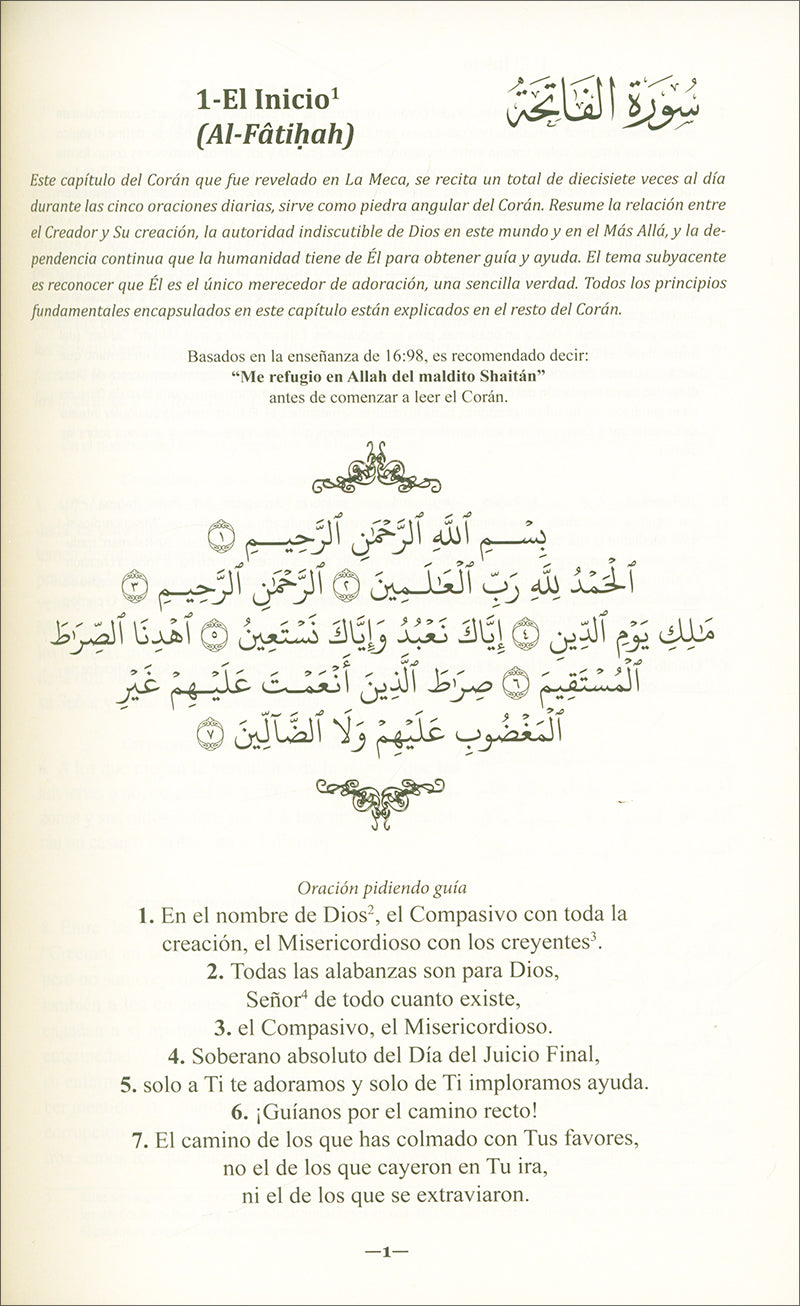 1-El Inicio¹
سُورَةُ الفَاتِحَةِ
(Al-Fâtiḥah)
Este capítulo del Corán que fue revelado en La Meca, se recita un total de diecisiete veces al día
durante las cinco oraciones diarias, sirve como piedra angular del Corán. Resume la relación entre
el Creador y Su creación, la autoridad indiscutible de Dios en este mundo y en el Más Allá, y la de-
pendencia continua que la humanidad tiene de Él para obtener guía y ayuda. El tema subyacente
es reconocer que Él es el único merecedor de adoración, una sencilla verdad. Todos los principios
fundamentales encapsulados en este capítulo están explicados en el resto del Corán.
Basados en la enseñanza de 16:98, es recomendado decir:
“Me refugio en Allah del maldito Shaitán”
antes de comenzar a leer el Corán.
بِسۡمِ ٱللَّهِ ٱلرَّحۡمَٰنِ ٱلرَّحِيمِ ١
ٱلۡحَمۡدُ لِلَّهِ رَبِّ ٱلۡعَٰلَمِينَ ٢ ٱلرَّحۡمَٰنِ ٱلرَّحِيمِ ٣
مَٰلِكِ يَوۡمِ ٱلدِّينِ ٤ إِيَّاكَ نَعۡبُدُ وَإِيَّاكَ نَسۡتَعِينُ ٥ ٱهۡدِنَا ٱلصِّرَٰطَ
ٱلۡمُسۡتَقِيمَ ٦ صِرَٰطَ ٱلَّذِينَ أَنۡعَمۡتَ عَلَيۡهِمۡ غَيۡرِ
ٱلۡمَغۡضُوبِ عَلَيۡهِمۡ وَلَا ٱلضَّآلِّينَ ٧
Oración pidiendo guía
1. En el nombre de Dios², el Compasivo con toda la
creación, el Misericordioso con los creyentes³.
2. Todas las alabanzas son para Dios,
Señor⁴ de todo cuanto existe,
3. el Compasivo, el Misericordioso.
4. Soberano absoluto del Día del Juicio Final,
5. solo a Ti te adoramos y solo de Ti imploramos ayuda.
6. ¡Guíanos por el camino recto!
7. El camino de los que has colmado con Tus favores,
no el de los que cayeron en Tu ira,
ni el de los que se extraviaron.
—1—